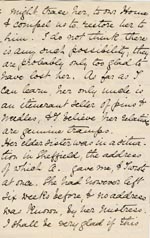 might trace her, to our Home
& compel us to restore her to
him. I do not think there
is any such possibility, they
are probably only too glad to
have lost her. As far as I
can learn, her only uncle is
an itinerant seller of pins &
needles, & I believe her relatives
are genuine tramps.
Her elder sister was in a situa-
tion in Sheffield, the address
of which A. gave me, & I wrote
at once. She had however left
six weeks before & no address
was known by her mistress.
I shall be very glad if this